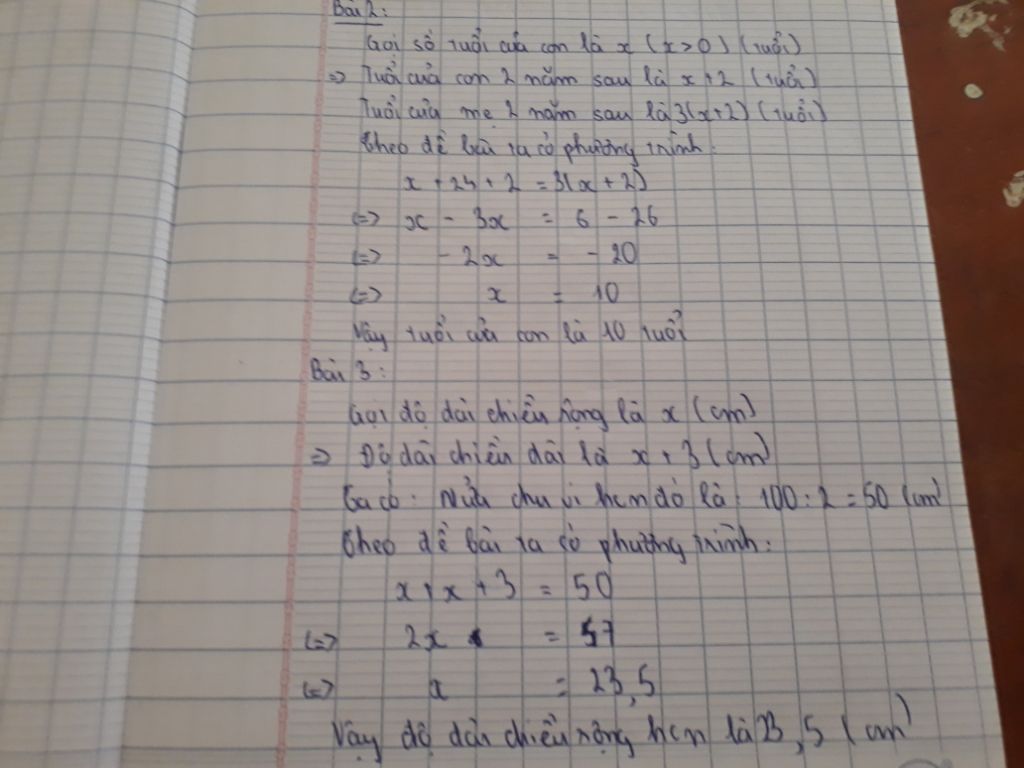 Bài 2:
Gọi số tuổi của con là x (x>0) (tuổi)
=> Tuổi của con 2 năm sau là x+2 (tuổi)
Tuổi của mẹ 2 năm sau là 3(x+2) (tuổi)
Theo đề bài ra có phương trình:
x + 24 + 2 = 3(x+2)
<=> x - 3x = 6 - 26
<=> - 2x = - 20
<=> x = 10
Vậy tuổi của con là 10 tuổi
Bài 3:
Gọi độ dài chiều rộng là x (cm)
=> Độ dài chiều dài là x + 3 (cm)
Ta có: Nửa chu vi hcn đó là: 100 : 2 = 50 (cm)
Theo đề bài ra có phương trình:
x + x + 3 = 50
<=> 2x = 47
<=> x = 23,5
Vậy độ dài chiều rộng hcn là 23,5 (cm)